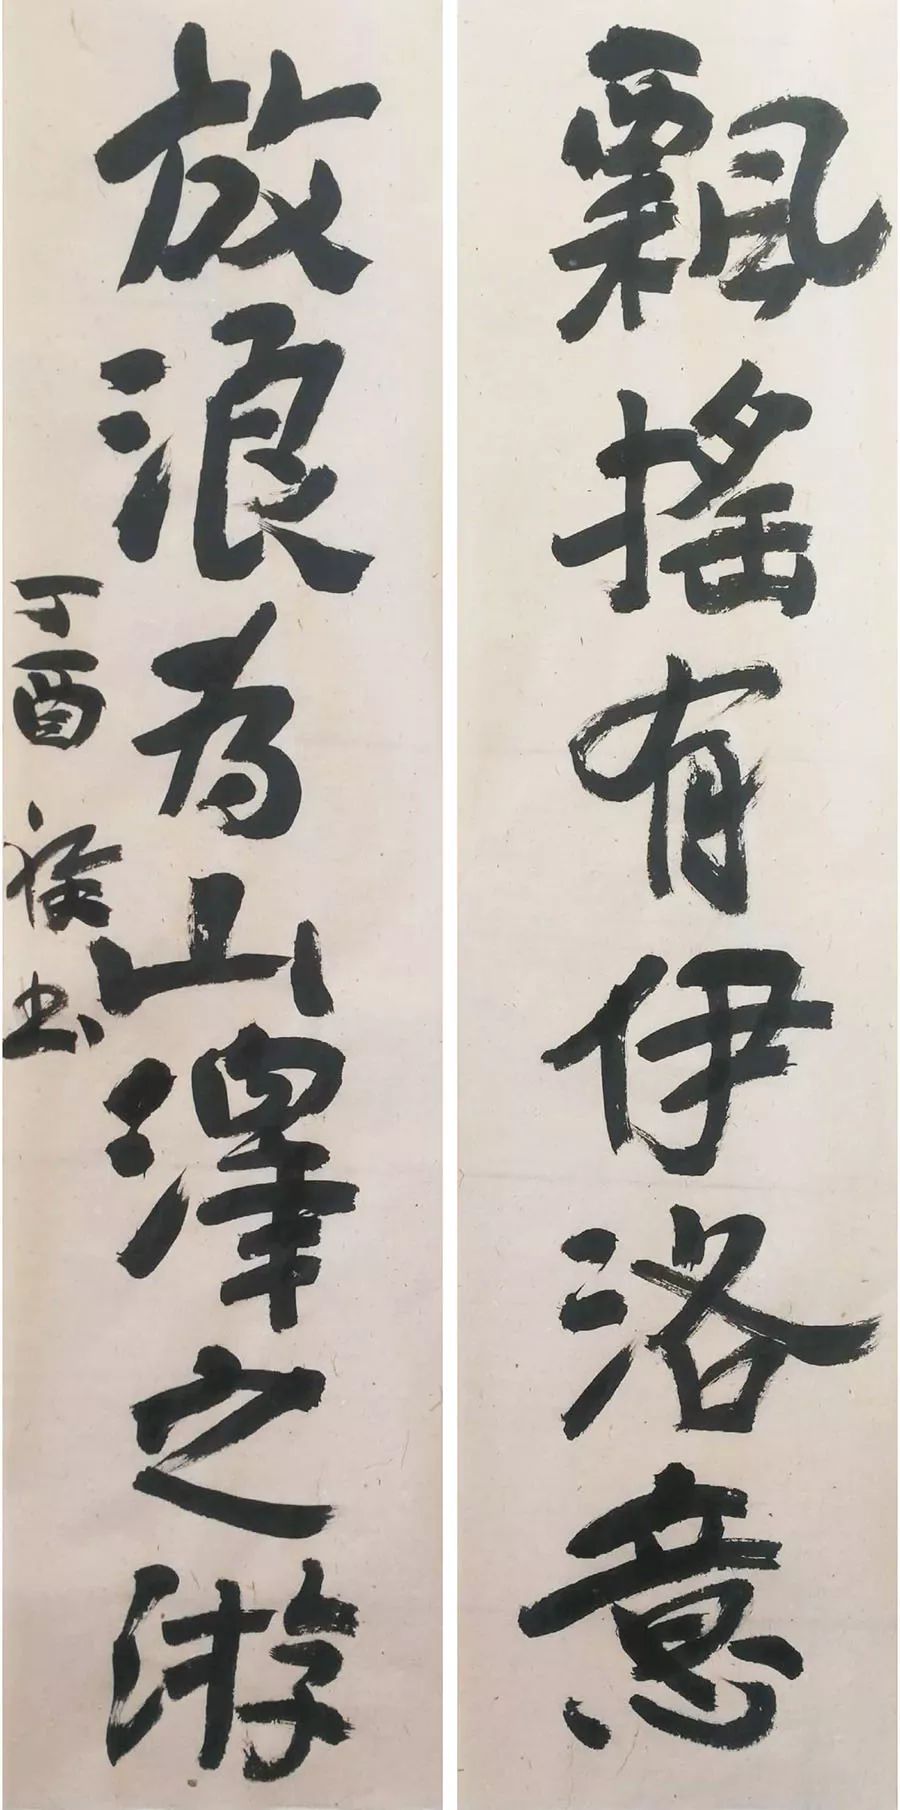 飄搖有伊洛意
放浪為山澤之游
丁酉 徐書